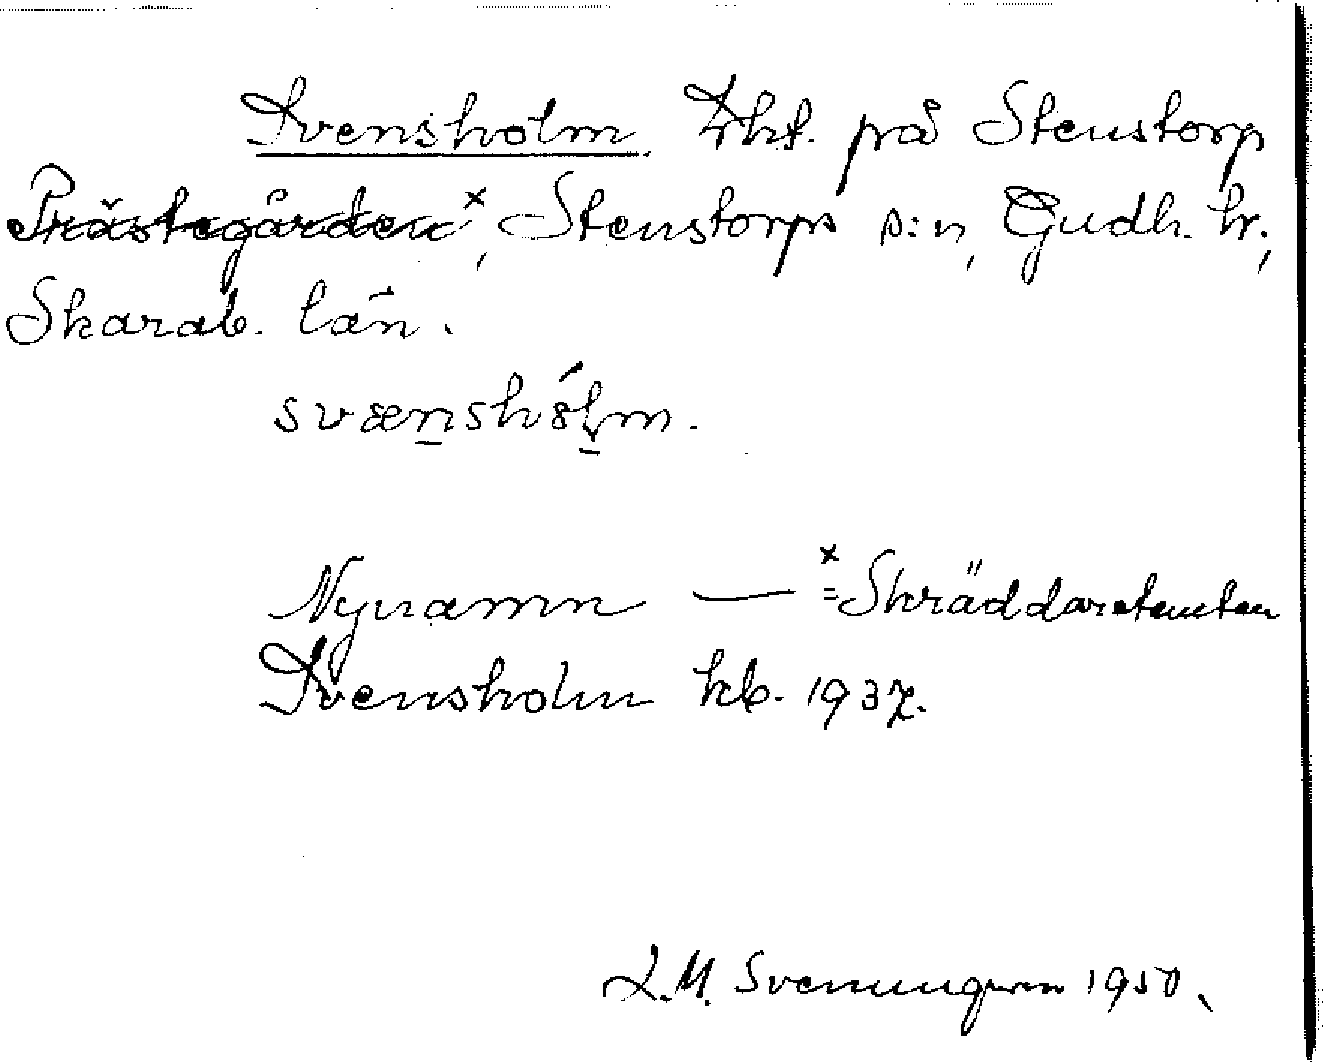 Svensholm Lht. på Stenstorp
Prästegården ˣ, Stenstorps s:n, Gudh. hr.,
Skarab. län.
svænshólm.
Nynamn — ˣ=Skräddaretomten
Svensholm kb. 1937.
L.M. Svenungsson 1950.